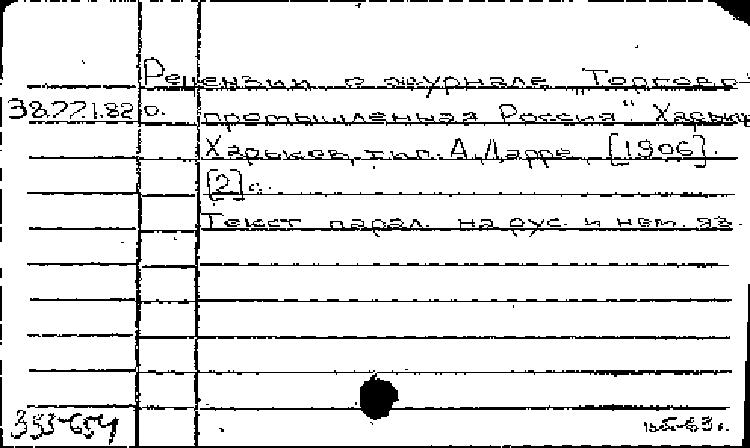 Рецензии в журнале „Торгово-
38.771.82 о. промышленная Россия“ Харьк
Харьков, тип. А. Дарре, [1906].
[2] с.
Текст парал. на рус. и нем. яз.
353-654